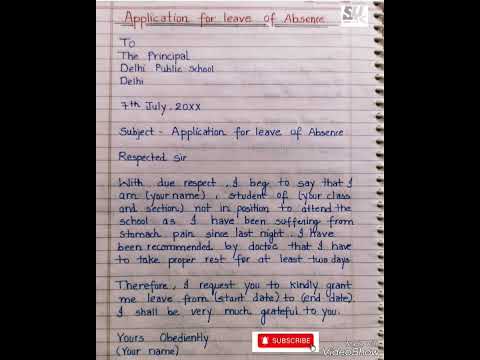 Application for leave of Absence
To
The Principal
Delhi Public School
Delhi
7th July, 20XX
Subject - Application for leave of Absence
Respected Sir
With due respect, I beg to say that I
am (your name), student of (your class
and section) not in position to attend the
school as I have been suffering from
stomach pain since last night. I have
been recommended by doctor that I have
to take proper rest for at least two days
Therefore, I request you to kindly grant
me leave from (start date) to (end date).
I shall be very much grateful to you.
Yours Obediently
(Your name)
SUBSCRIBE
VideoShow